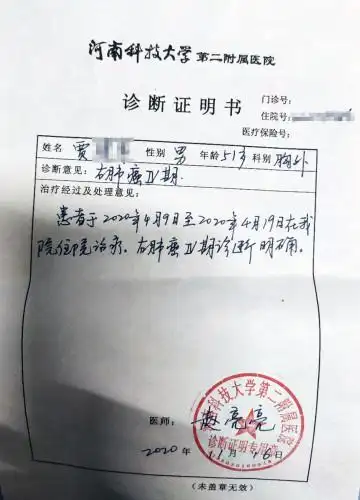 河南科技大学第二附属医院
诊断证明书
门诊号:
住院号:
医疗保险号:
姓名 贾 性别 男 年龄 51岁 科别 胸外
诊断意见: 右肺癌IV期.
治疗经过及处理意见:
患者于2020年4月9日至2020年4月19日在我
院住院治疗。右肺癌IV期诊断明确。
科技大学第二附属医院
诊断证明专用章
医师: 赵亮亮
2020 年 11 月 16 日
(未盖章无效)